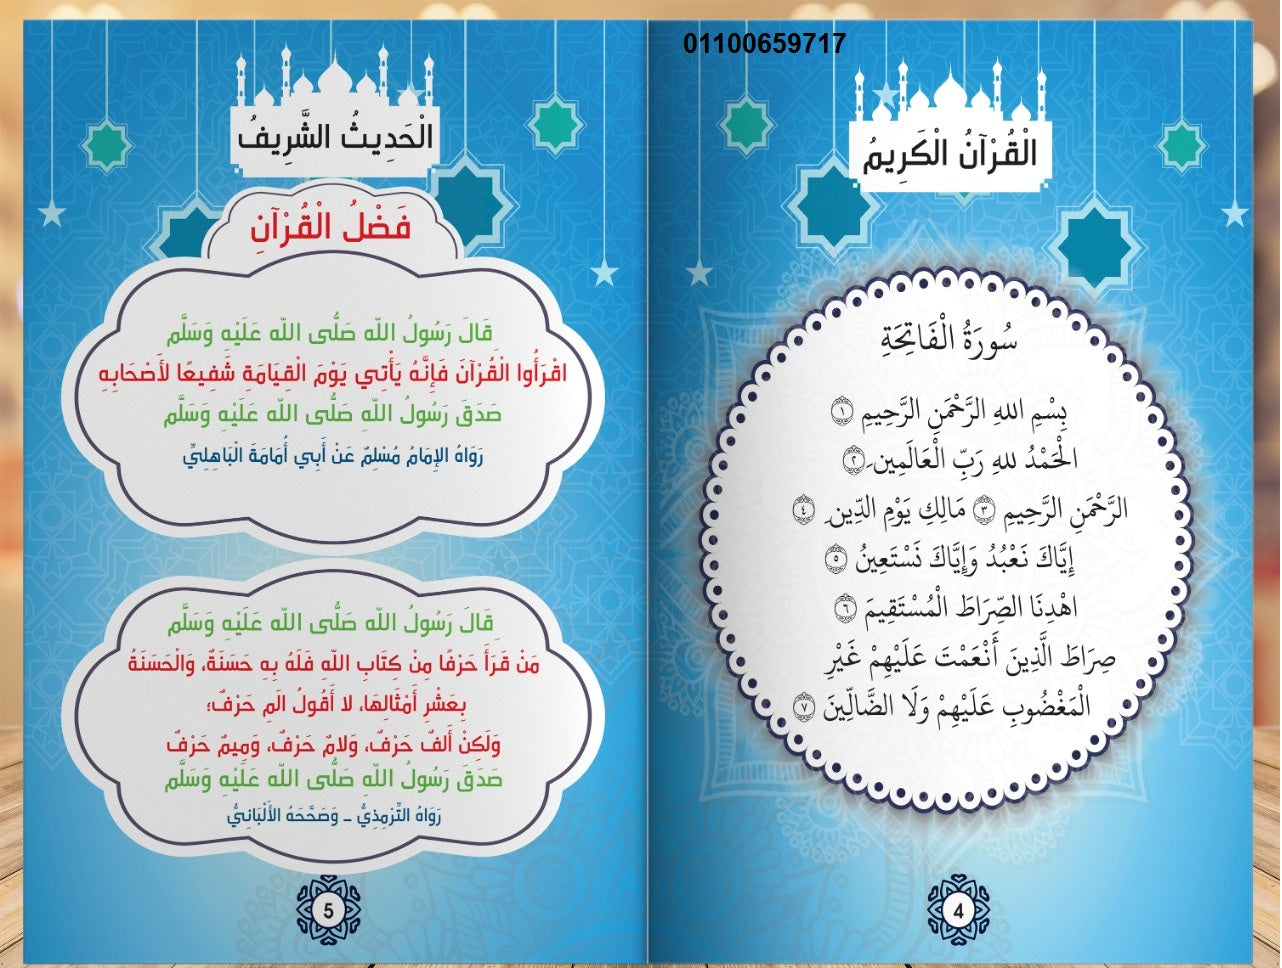 01100659717
الْقُرْآنُ الْكَرِيمُ
سُورَةُ الْفَاتِحَةِ
بِسْمِ اللهِ الرَّحْمَنِ الرَّحِيمِ ١
الْحَمْدُ للهِ رَبِّ الْعَالَمِين َ٢
الرَّحْمَنِ الرَّحِيمِ ٣ مَالِكِ يَوْمِ الدِّين ِ ٤
إِيَّاكَ نَعْبُدُ وَإِيَّاكَ نَسْتَعِينُ ٥
اهْدِنَا الصِّرَاطَ الْمُسْتَقِيمَ ٦
صِرَاطَ الَّذِينَ أَنْعَمْتَ عَلَيْهِمْ غَيْرِ
الْمَغْضُوبِ عَلَيْهِمْ وَلَا الضَّالِّينَ ٧
4
الْحَدِيثُ الشَّرِيفُ
فَضْلُ الْقُرْآنِ
قَالَ رَسُولُ اللّهِ صَلَّى اللّه عَلَيْهِ وَسَلَّم
اقْرَأُوا الْقُرْآنَ فَإِنَّهُ يَأْتِي يَوْمَ الْقِيَامَةِ شَفِيعًا لأَصْحَابِهِ
صَدَقَ رَسُولُ اللّهِ صَلَّى اللّه عَلَيْهِ وَسَلَّم
رَوَاهُ الإِمَامُ مُسْلِمُ عَنْ أَبِي أُمَامَةَ الْبَاهِلِيِّ
قَالَ رَسُولُ اللّهِ صَلَّى اللّه عَلَيْهِ وَسَلَّم
مَنْ قَرَأَ حَرْفًا مِنْ كِتَابِ اللّهِ فَلَهُ بِهِ حَسَنَةٌ، وَالْحَسَنَةُ
بِعَشْرِ أَمْثَالِهَا، لا أَقُولُ الَمِ حَرْفٌ؛
وَلَكِنْ أَلفٌ حَرْفٌ، وَلامٌ حَرْفٌ، وَمِيمٌ حَرْفٌ
صَدَقَ رَسُولُ اللّهِ صَلَّى اللّه عَلَيْهِ وَسَلَّم
رَوَاهُ التِّرْمِذِيُّ ــ وَصَحَّحَهُ الأَلْبَانِيُّ
5